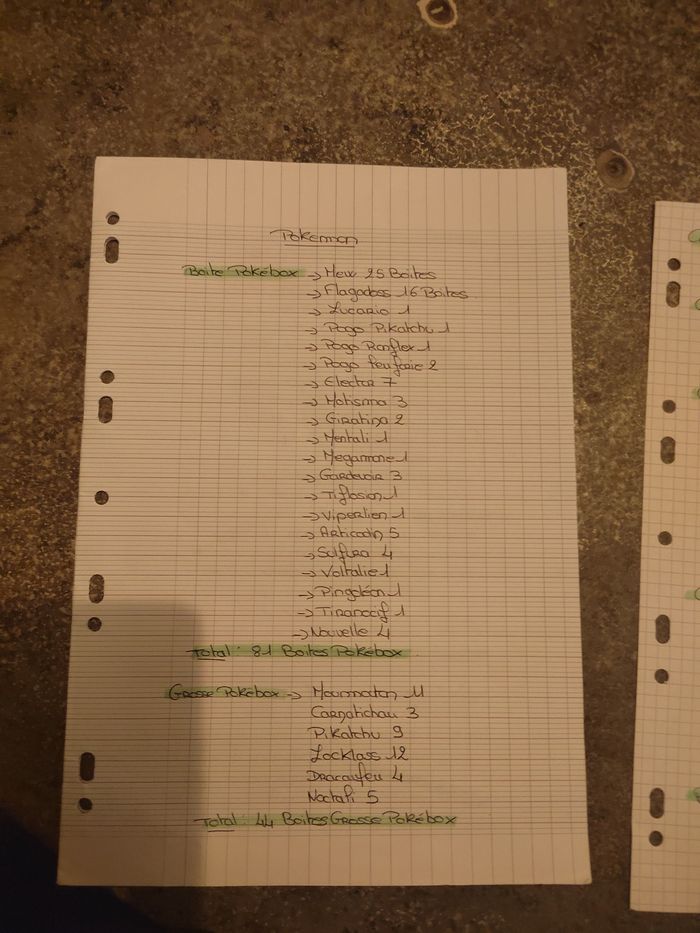 Pokemon
Boite Pokébox → Mew 25 Boites
→ Flagadoss 16 Boites
→ Lucario 1
→ Pogo Pikatchu 1
→ Pogo Ronflex 1
→ Pogo feuforie 2
→ Elector 7
→ Motisma 3
→ Giratina 2
→ Mentali 1
→ Megamone 1
→ Gardevoir 3
→ Tiflosion 1
→ Viperlien 1
→ Articodin 5
→ Sulfura 4
→ Voltalie 1
→ Pingoléon 1
→ Tiranocif 1
→ Nouvelle 4
Total : 81 Boites Pokébox
Grosse Pokébox → Mourmaton 11
Carnatichau 3
Pikatchu 9
Locklass 12
Dracaufeu 4
Noctali 5
Total : 44 Boites Grosse Pokébox